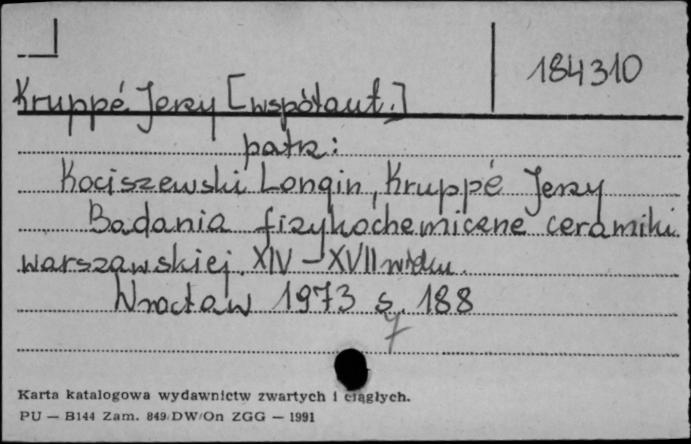 184310
Kruppé Jerzy [współaut.]
patrz:
Kociszewski Longin, Kruppé Jerzy
Badania fizykochemiczne ceramiki
warszawskiej XIV – XVII wieku.
Wrocław 1973 s. 188
7
Karta katalogowa wydawnictw zwartych i ciągłych.
PU — B144 Zam. 849/DW/On ZGG — 1991